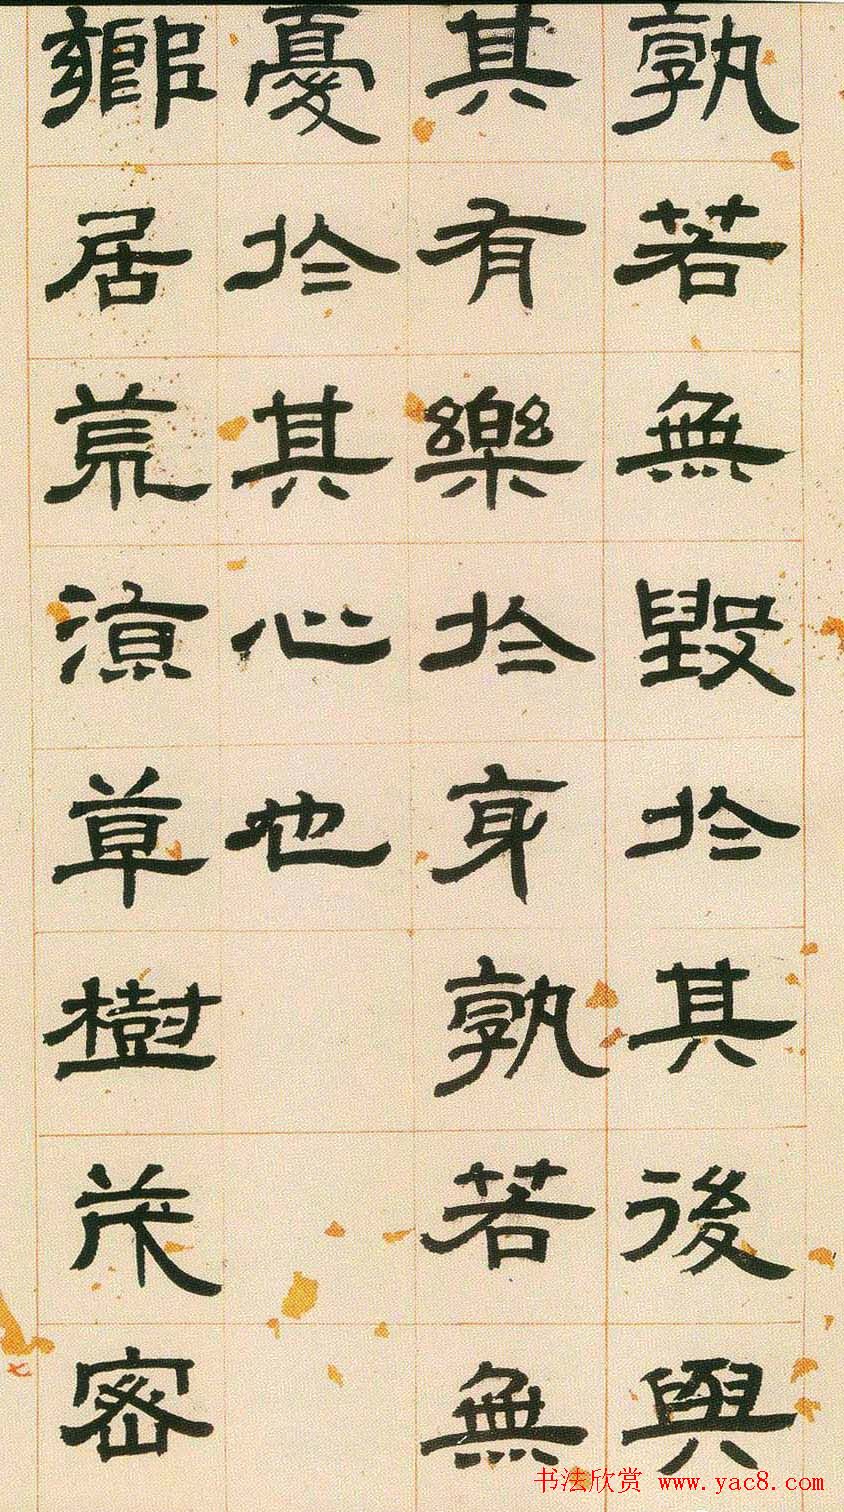 孰若無毀於其後與
其有樂於身孰若無
憂於其心也
鄉居荒涼草樹茂密
书法欣赏 www.yac8.com